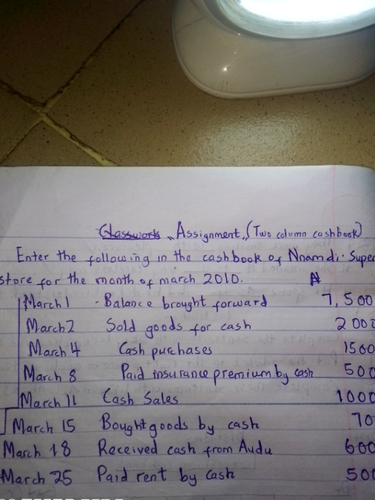 Classwork Assignment (Two column cashbook)
Enter the following in the cashbook of Nnamdi Super
store for the month of march 2010. ₦
March 1 Balance brought forward 7,500
March 2 Sold goods for cash 2000
March 4 Cash purchases 1500
March 8 Paid insurance premium by cash 500
March 11 Cash Sales 1000
March 15 Bought goods by cash 70
March 18 Received cash from Audu 600
March 25 Paid rent by cash 500